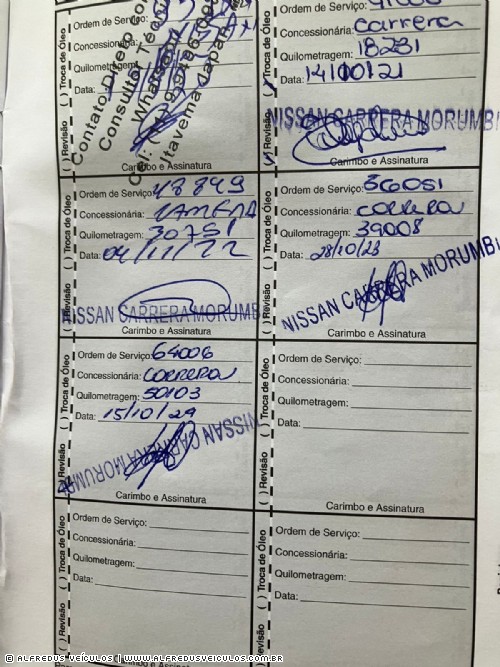 Ordem de Serviço:
Concessionária:
Quilometragem:
Data:
( ) Revisão ( ) Troca de Óleo
Contato Direto com
Consultor
Whatsapp
Cel:
Itavema
Carimbo e Assinatura
Ordem de Serviço:
Concessionária: Carrera
Quilometragem: 18231
Data: 14/10/21
Revisão Troca de Óleo
NISSAN CARRERA MORUMBI
Carimbo e Assinatura
Ordem de Serviço: 48849
Concessionária:
Quilometragem: 30751
Data: 04/11/22
( ) Revisão ( ) Troca de Óleo
NISSAN CARRERA MORUMBI
Carimbo e Assinatura
Ordem de Serviço: 56051
Concessionária: CORRERA
Quilometragem: 39008
Data: 28/10/23
( ) Revisão ( ) Troca de Óleo
NISSAN CARRERA MORUMBI
Carimbo e Assinatura
Ordem de Serviço: 64006
Concessionária: CORRERA
Quilometragem: 50103
Data: 15/10/24
( ) Revisão ( ) Troca de Óleo
NISSAN CARRERA MORUMBI
Carimbo e Assinatura
Ordem de Serviço:
Concessionária:
Quilometragem:
Data:
( ) Revisão ( ) Troca de Óleo
Carimbo e Assinatura
Ordem de Serviço:
Concessionária:
Quilometragem:
Data:
( ) Revisão ( ) Troca de Óleo
Ordem de Serviço:
Concessionária:
Quilometragem:
Data:
( ) Revisão ( ) Troca de Óleo
© ALFREDUS VEÍCULOS | WWW.ALFREDUSVEICULOS.COM.BR